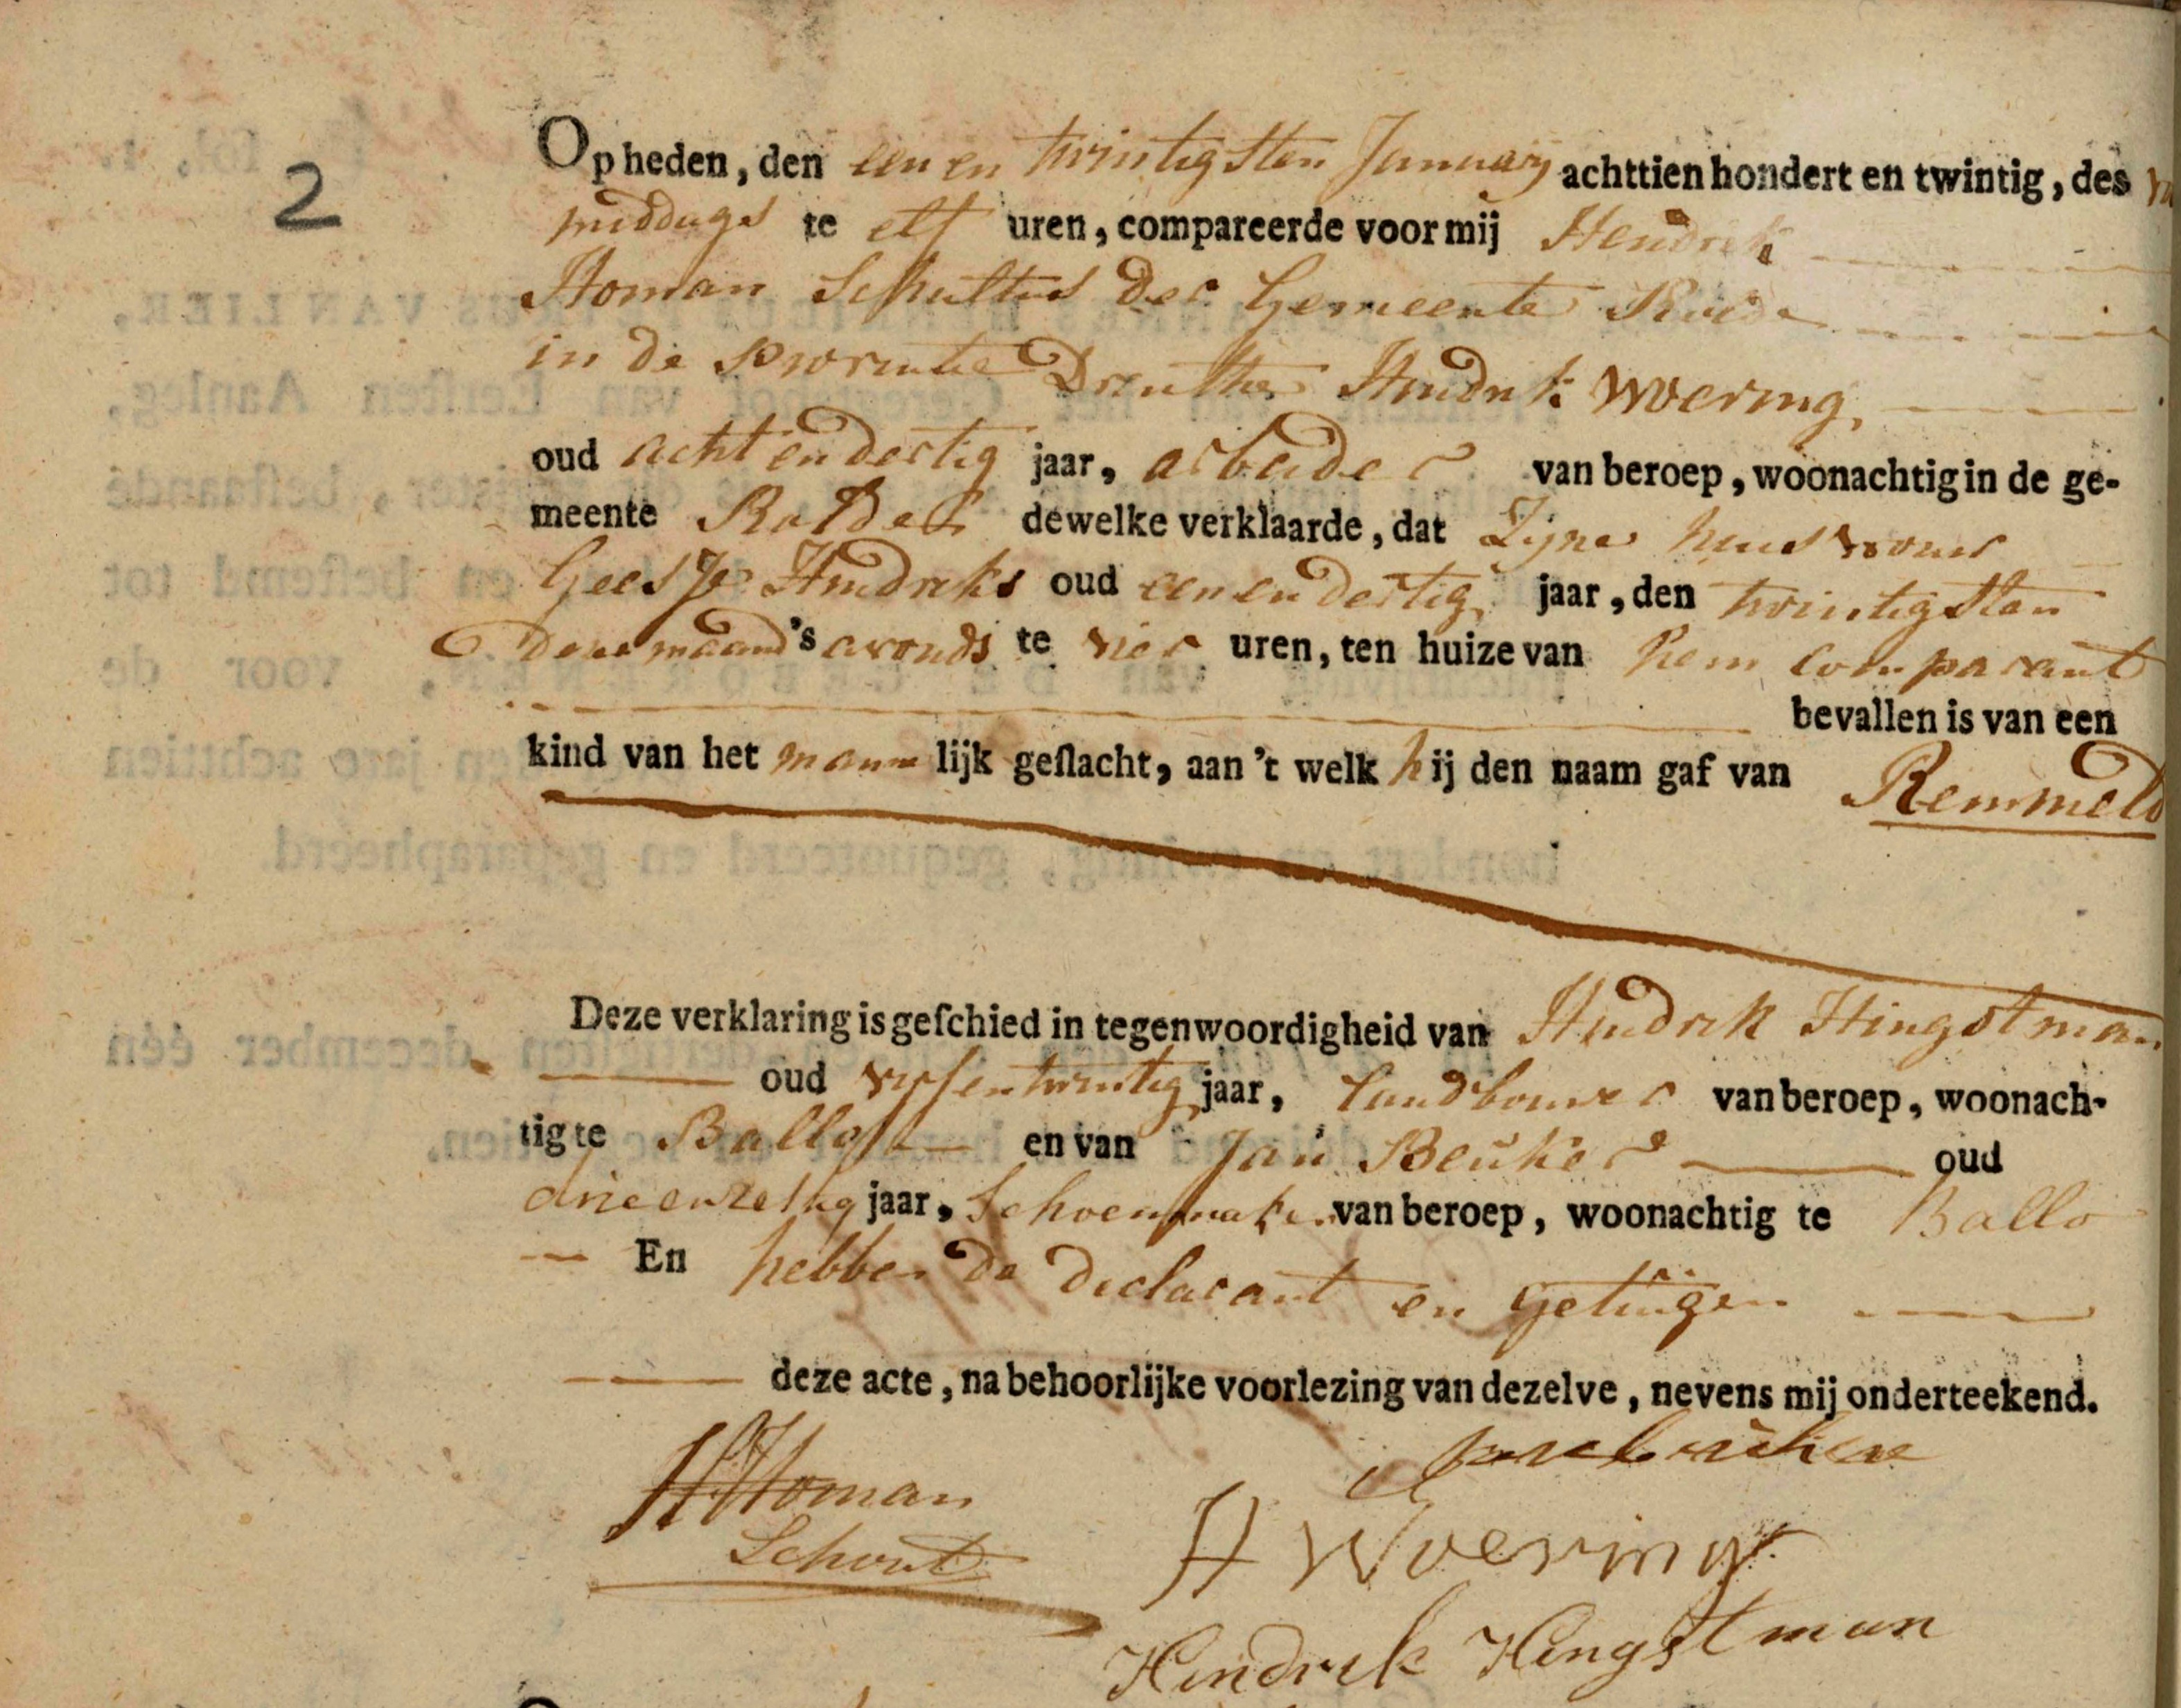 2
Op heden, den een en twintigsten January achttienhondert en twintig, des
middags te elf uren, compareerde voor mij Hendrik
Homan Schultus der Gemeente Rolde
in de provintie Drenthe Hendrik Woering
oud achtendertig jaar, arbeider van beroep, woonachtig in de ge-
meente Rolde dewelke verklaarde, dat Zijne huisvrouw
Geesje Hendriks oud eenendertig jaar, den twintigsten
dezer maand 's avonds te vier uren, ten huize van hem comparant
bevallen is van een
kind van het mannlijk geslacht, aan 't welk hij den naam gaf van Remmelt
Deze verklaring is geschied in tegenwoordigheid van Hendrik Hingstman
oud vyfentwintig jaar, landbouwer van beroep, woonach-
tig te Ballo en van Jan Beuker oud
drieenzestig jaar, Schoenmaker van beroep, woonachtig te Ballo
En hebben de declarant en getuigen
deze acte, na behoorlijke voorlezing van dezelve, nevens mij onderteekend.
HHoman
Schout
H Woering
Hendrik Hengstman